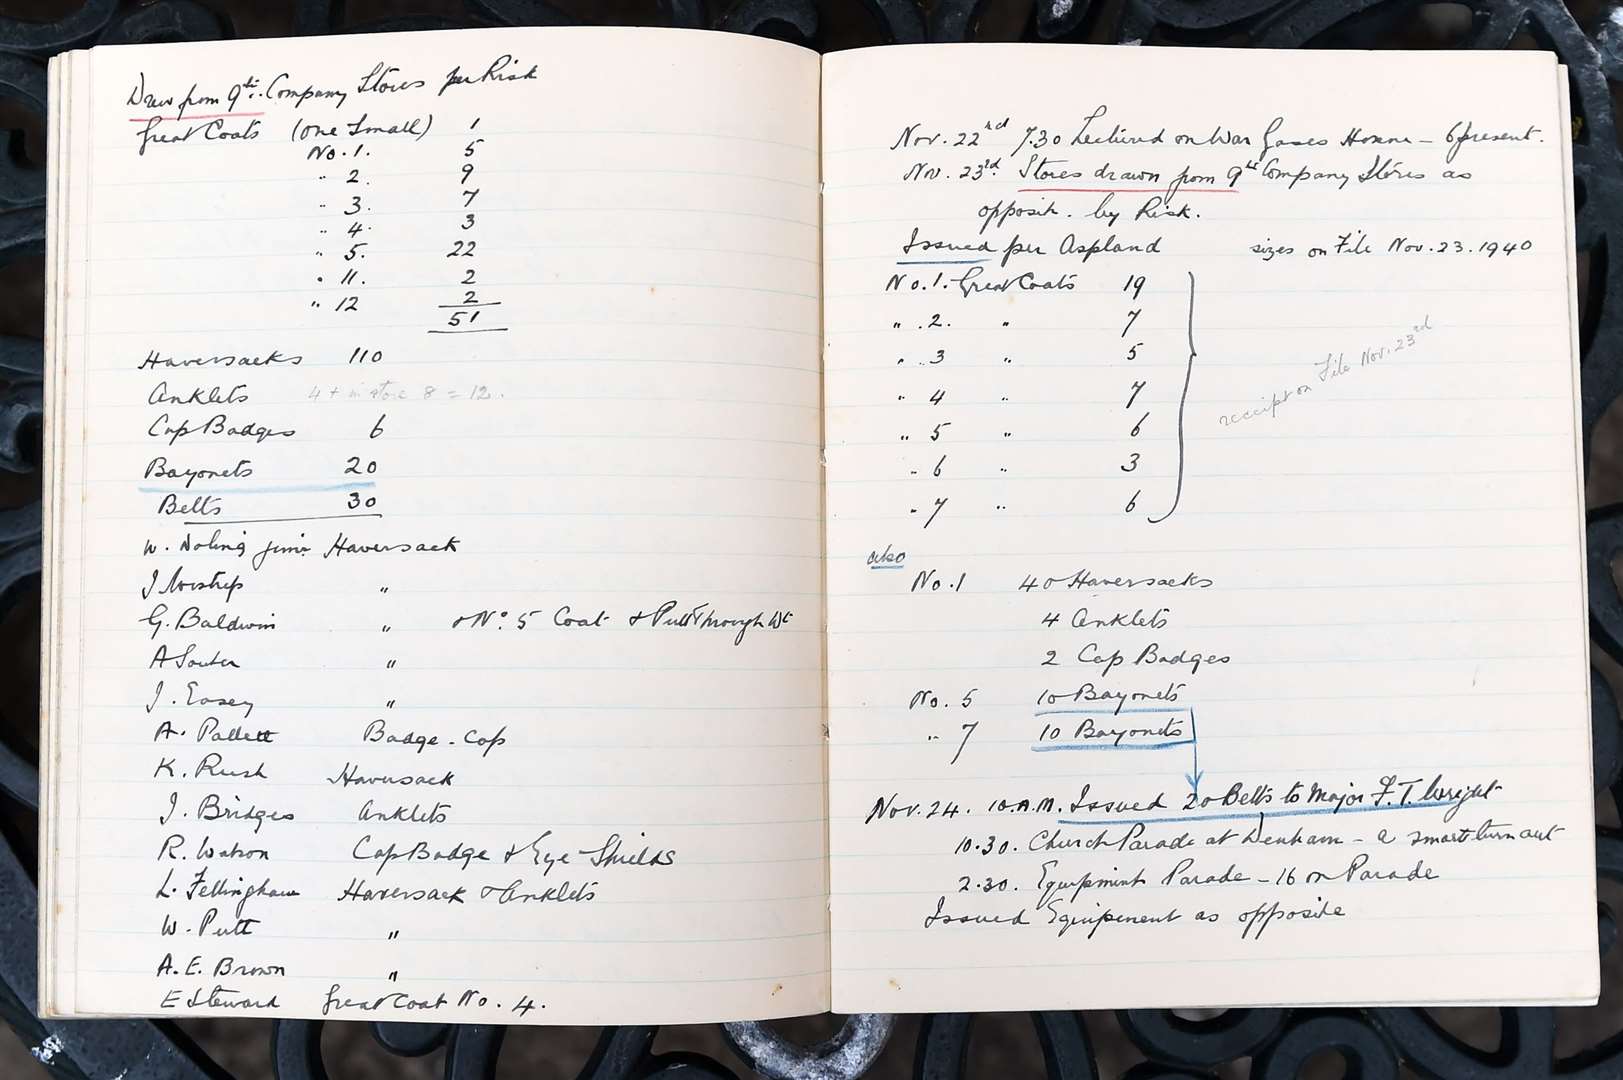 Draw from 9th. Company Stores per Risk
Great Coats (one Small) 1
No. 1. 5
" 2. 9
" 3. 7
" 4. 3
" 5. 22
" 11. 2
" 12 2
51
Haversacks 110
Anklets 4 + in store 8 = 12.
Cap Badges 6
Bayonets 20
Belts 30
W. Junr Haversack
J "
G. Baldwin " & No. 5 Coat & Pull Through
A Souter "
J. Easey "
A. Pallett Badge - Cap
K. Rush Haversack
J. Bridges Anklets
R. Watson Cap Badge & Eye Shields
L. Fellingham Haversack & Anklets
W. Putt "
A. E. Brown "
E Steward Great Coat No. 4.
Nov. 22nd 7.30 Lectured on War Gases Honne - 6 present.
Nov. 23rd. Stores drawn from 9th Company Stores as
opposite. by Risk.
Issued per Aspland sizes on File Nov. 23. 1940
No. 1. Great Coats 19
" . 2. " 7
" . 3 " 5
" 4 " 7
" 5 " 6
" 6 " 3
" 7 " 6
receipt on File Nov. 23rd
also
No. 1 40 Haversacks
4 Anklets
2 Cap Badges
No. 5 10 Bayonets
" 7 10 Bayonets
Nov. 24. 10. A.M. Issued 20 Belts to Major F. T. Wright
10.30. Church Parade at Denham - a smart turn out
2.30. Equipment Parade - 16 on Parade
Issued Equipment as opposite